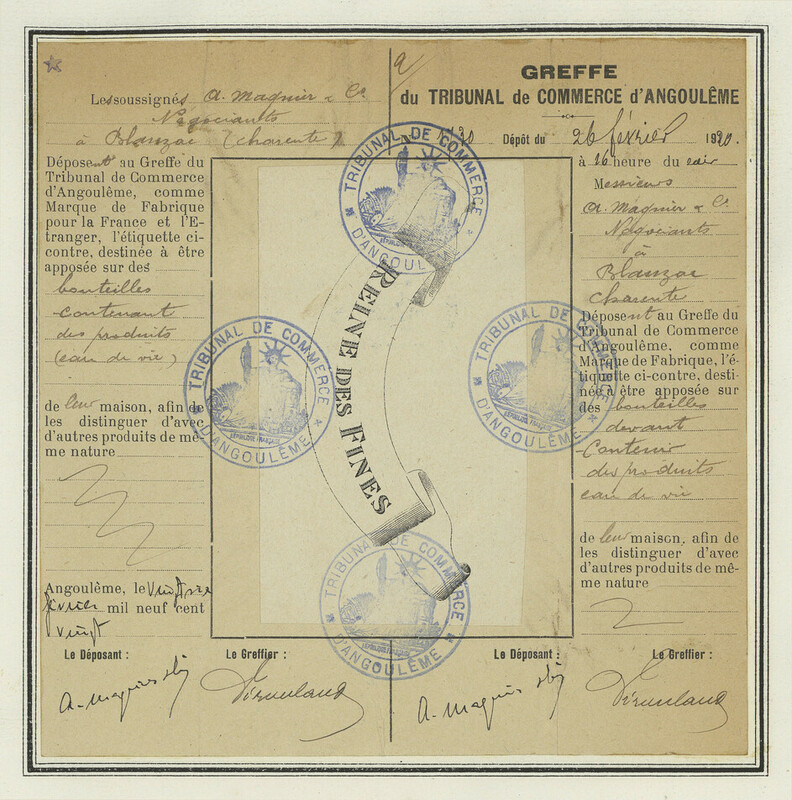 Les soussignés A. Magnier & Cie
Négociants
à Blanzac (Charente)
Déposent au Greffe du
Tribunal de Commerce
d'Angoulême, comme
Marque de Fabrique
pour la France et l'E-
tranger, l'étiquette ci-
contre, destinée à être
apposée sur des
bouteilles
contenant
des produits
(eau de vie)
de leur maison, afin de
les distinguer d'avec
d'autres produits de mê-
me nature
Angoulême, le
février mil neuf cent
vingt
Le Déposant :
Le Greffier :
A. Magnier
TRIBUNAL DE COMMERCE
D'ANGOULÊME
REINE DES FINES
TRIBUNAL DE COMMERCE
RÉPUBLIQUE FRANÇAISE
D'ANGOULÊME
TRIBUNAL DE COMMERCE
D'ANGOULÊME
TRIBUNAL DE COMMERCE
D'ANGOULÊME
GREFFE
du TRIBUNAL de COMMERCE d'ANGOULÊME
Dépôt du 26 février 1920.
à 16 heure du soir
Messieurs
A. Magnier & Cie
Négociants
à
Blanzac
Charente
Déposent au Greffe du
Tribunal de Commerce
d'Angoulême, comme
Marque de Fabrique, l'é-
tiquette ci-contre, desti-
née à être apposée sur
des bouteilles
devant
contenir
des produits
eau de vie
de leur maison, afin de
les distinguer d'avec
d'autres produits de mê-
me nature
Le Déposant :
Le Greffier :
A. Magnier